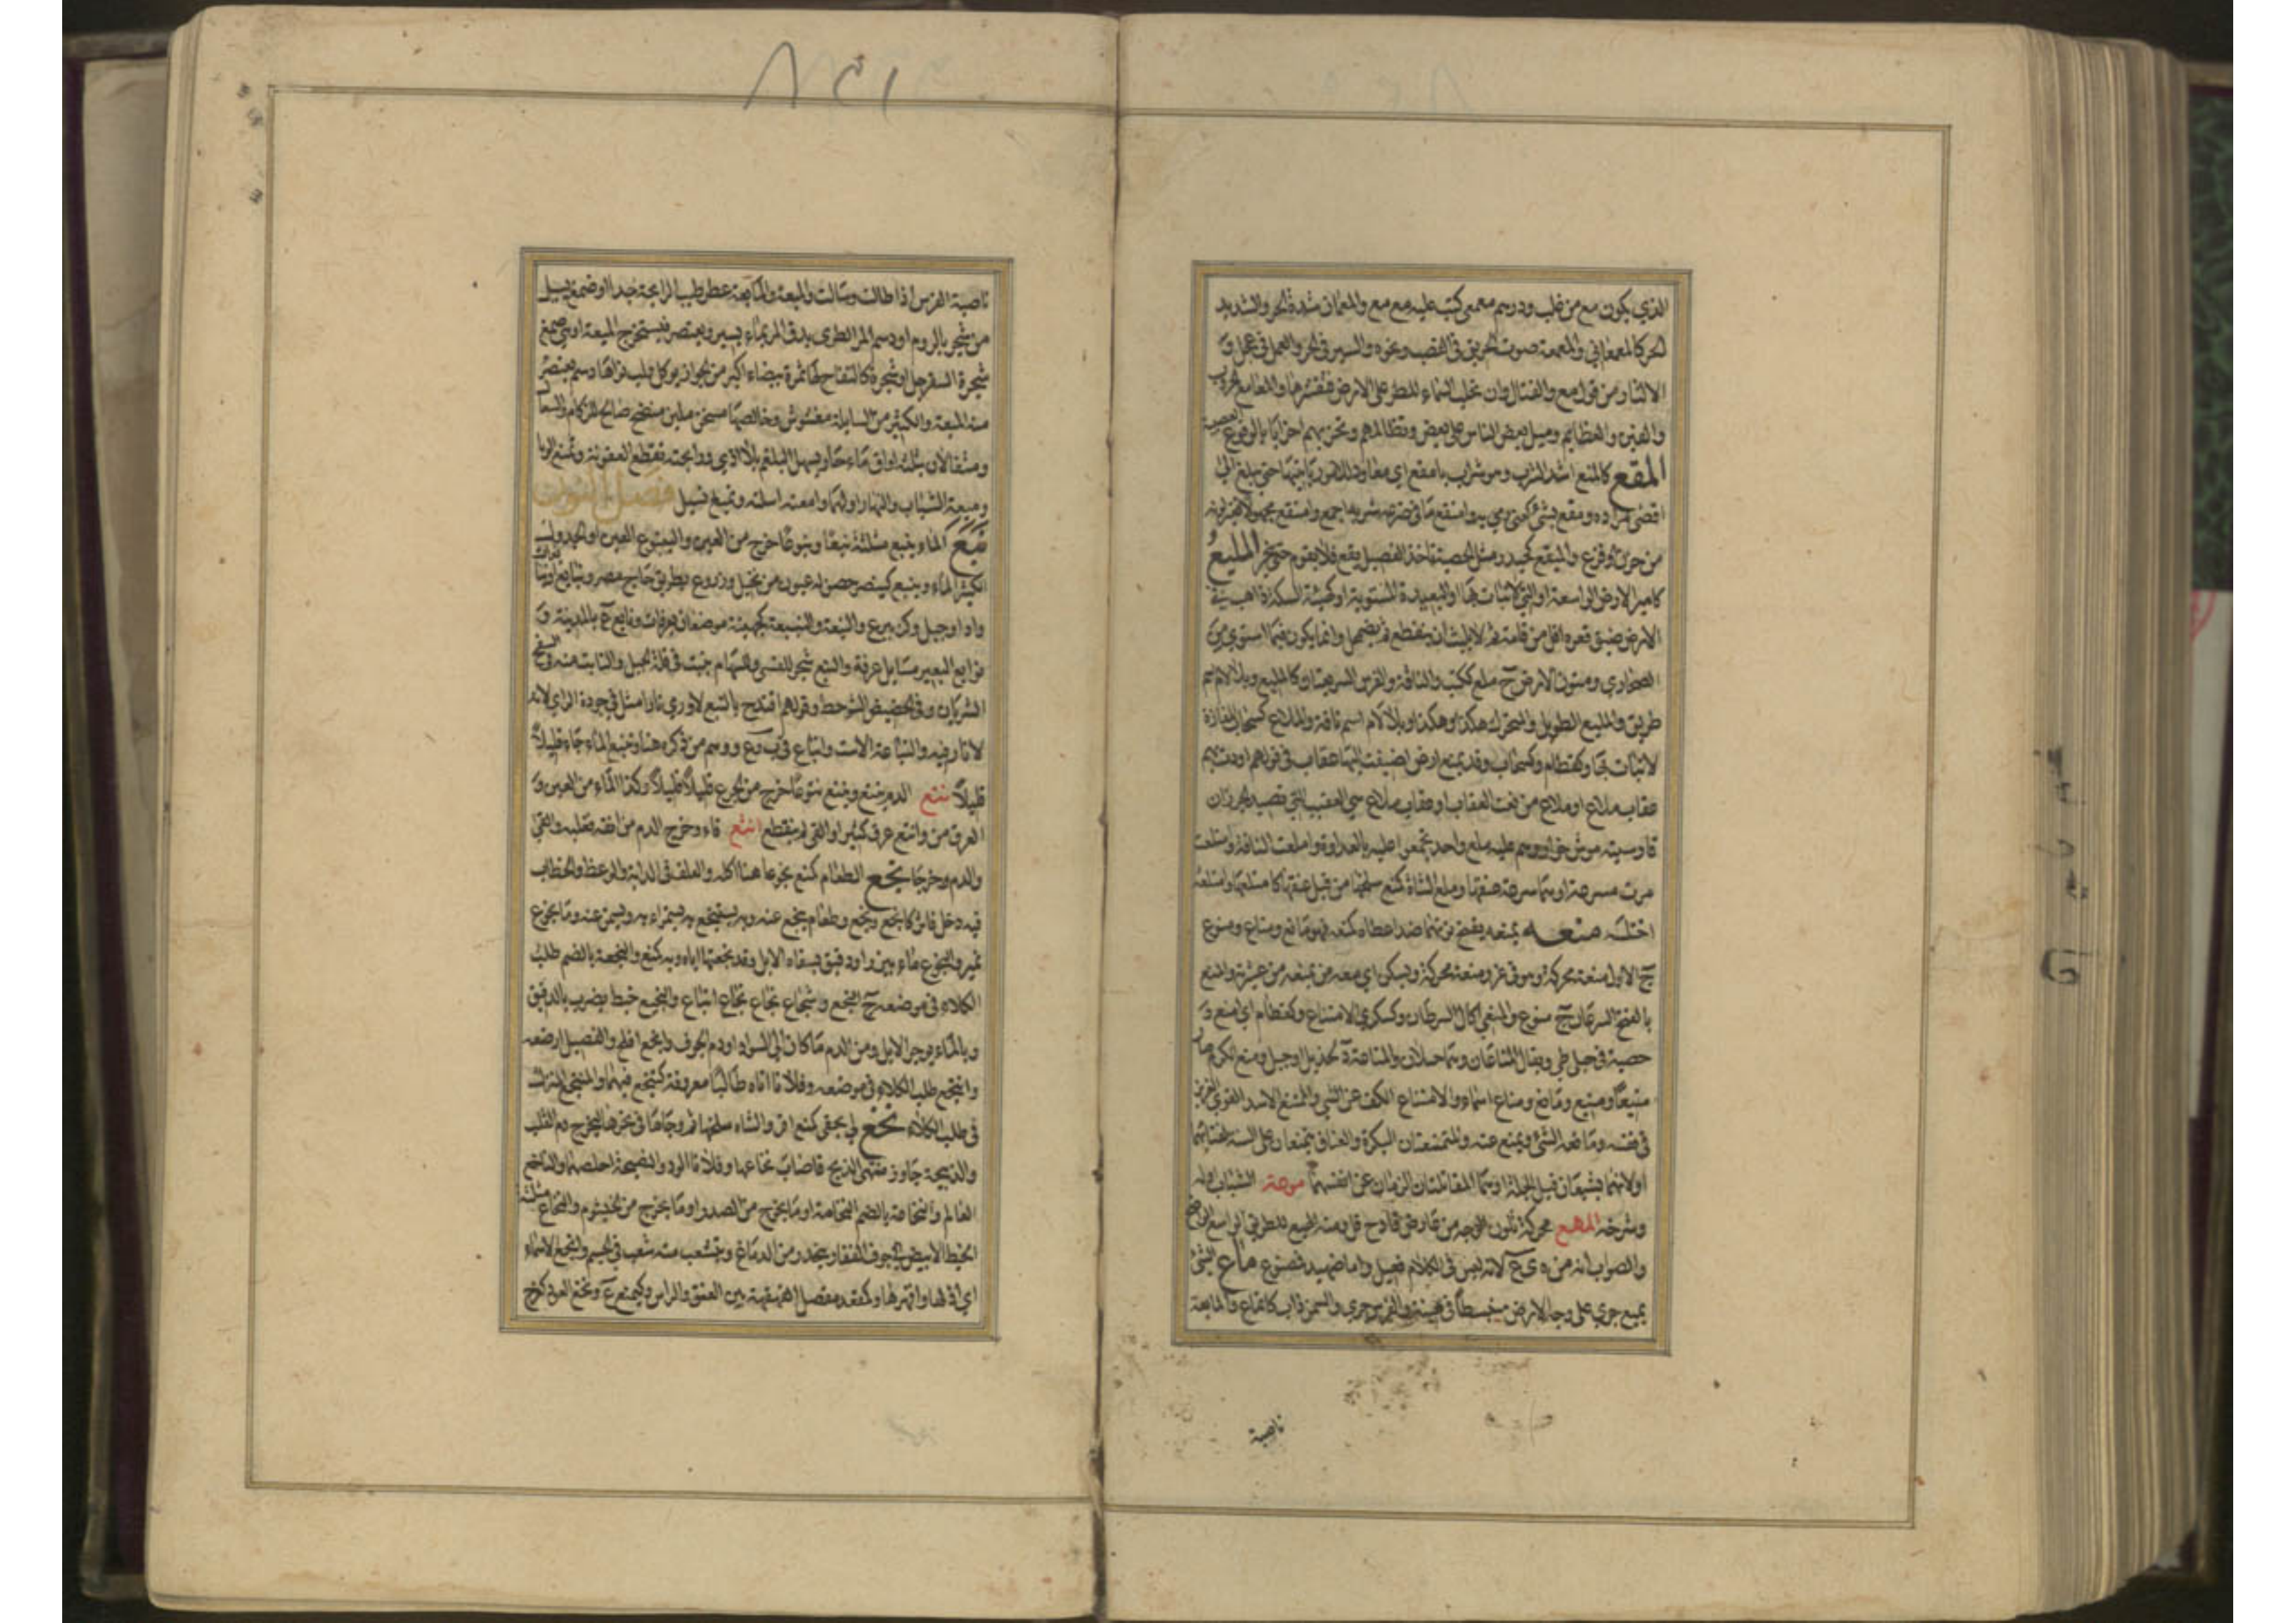 الذي يكون مع من غلب ودرهم معمعي كتب عليه مع مع والمعمعان شدة الحر والشديد
الحر كالمعمعاني والمعمعة صوت الحريق في القصب ونحوه والسير في الحر والعمل في عجل و
الاكثار من قول مع والقتال وان تحلب السماء المطر على الارض فتقشرها والمعامع الحروب
والفتن والعظايم وميل بعض الناس على بعض وتظالمهم وتحزبهم احزابا بالوقوع العصبية
المقع كالمنع اشد الشرب وهو شراب بامقع اي معاود للامور ياتيها حتى يبلغ الى
اقصى مراده ومقع بشئ كعني رمي به وامتقع ما في ضرعه شربه اجمع وامتقع مجهولا تغير لونه
من حزن او فزع والميقع كحيدر مثل الحصبة تاخذ الفصيل يقع فلا يقوم حتى ينحر المليع
كامير الارض الواسعة او التي لا نبات بها او البعيدة المستوية او كهيئة السكة ذاهبة في
الارض ضيق قعره اقل من قامة ثم لا يلبث ان ينقطع ثم يضمحل وانما يكون فيما استوى من
الصحاري ومتون الارض ج ملع ككتب والناقة والفرس السريعتان كالميلع وبلا لام اسم
طريق والميلع الطويل والمتحرك هكذا وهكذا وبلا لام اسم ناقة والملاع كسحاب المفازة
لا نبات بها وكقطام وكسحاب وقد يمنع ارض اضيفت اليها عقاب في قولهم اودت بهم
عقاب ملاع او ملاع من نعت العقاب او عقاب ملاع هي العقيب التي تصيد الجرذان
فارسيته موش خوار وهم عليه ملع واحد تجمعوا عليه بالعداوة واملعت الناقة وامتلعت
مرت مسرعة او بها سرعة عنقها وملع الشاة كمنع سلخها من قبل عنقها كامتلعها وامتلعه
اختلسه منعه يمنعه بفتح نونهما ضد اعطاه كمنعه فهو مانع ومناع ومنوع
ج الاول منعة محركة وهو في عز ومنعة محركة ويسكن اي معه من يمنعه من عشيرته والمنع
بالفتح السرطان ج منوع والمنعي اكال السرطان وكسكرى الامتناع وكقطام اي امنع و
هضبة في جبل طي ويقال المناعان وهما جبلان والمناعة د لهذيل او جبل ومنع ككرم صار
منيعا ومنيع ومانع ومناع اسماء والامتناع الكف عن الشي والمتمنع الاسد القوي العزيز
في نفسه ومانعه الشئ وتمنع عنه والمتمنعتان البكرة والعناق يتمنعان على السنة لفتائهما
او لانهما يشبعان قبل الجلة او هما المقاتلتان الزمان عن انفسهما موعة الشباب اوله
وشرخه المهع محركة تلون الوجه من عارض فادح قلت منه المهيع للطريق الواسع الواضح
والصواب انه من ه ي ع لانه ليس في الكلام فعيل واما ضهيد فمصنوع ماع الشئ
يميع جرى على وجه الارض منبسطا في هينة والفرس جرى والسمن ذاب كانماع والمايعة
ناصية
٨٥١
ناصية الفرس اذا طالت وسالت والميعة والمايعة عطر طيب الرايحة جدا او صمغ يسيل
من شجر بالروم او دسم المر الطري يدق المر بماء يسير ويعتصر فيستخرج الميعة او هي صمغ
شجرة السفرجل او شجرة كالتفاح لها ثمرة بيضاء اكبر من الجوز يوكل ولب نواها دسم يعتصر
منه الميعة والكثير من السايلة مغشوش وخالصها مسخن ملين منضج صالح للزكام والسعال
ومثقالان بثلث اواق ماء حار يسهل البلغم بلا اذى ورايحته تقطع العفونة وتمنع الوبا
وميعة الشباب والنهار اولهما وامعته اسلته وتميع تسيل فصل النون
نبع الماء ينبع مثلثة نبعا ونبوعا خرج من العين والينبوع العين او الجدول
الكثير الماء وينبع كينصر حصن له عيون من نخيل وزروع بطريق حاج مصر ونبايع او نبايعات
واد او جبل وكزبير ع والنبعة والنبيعة كجهينة موضعان بعرفات ونابع ع بالمدينة و
نوابع البعير مسايل عرقه والنبع شجر للقسي وللسهام ينبت في قلة الجبل والنابت منه في السفح
الشريان وفي الحضيض الشوحط وقولهم اقتدح بالنبع لاورى نارا مثل في جودة الراي لانه
لا نار فيه والنباعة الاست وانباع في ب و ع ووهم من ذكره هنا وتنبع الماء جاء قليلا
قليلا نتع الدم ينتع وينتع نتوعا خرج من الجرح قليلا قليلا وكذا الماء من العين و
العرق من وانتع عرق كثيرا او القي لم ينقطع انثع قاء وخرج الدم من انفه فغلبه والقئ
والدم وخرجا نجع الطعام كمنع نجوعا هنا اكله والعلف في الدابة والوعظ والخطاب
فيه دخل فاثر كانجع ونجع وطعام ينجع عنه وبه يستنجع به يستمراء به ويسمن عنه وماء نجوع
نمير والنجوع ماء ببزر او دقيق يسقاه الابل وقد نجعتها اياه وبه كمنع والنجعة بالضم طلب
الكلاء في موضعه ج النجع وشجاع نجاع نجاع اتباع والنجيع خبط يضرب بالدقيق
وبالماء يوجر الابل ومن الدم ما كان الى السواد او دم الجوف وانجع افلح والفصيل ارضعه
وانتجع طلب الكلاء في موضعه وفلانا اتاه طالبا معروفه كتنجع فيهما والمنتجع المنزل
في طلب الكلاء نخع لي بحقي كمنع اقر والشاة سلخها ثم وجاها في نحرها ليخرج دم القلب
والذبيحة جاوز منتهى الذبح فاصاب نخاعها وفلانا الود والنصيحة اخلصهما والناخع
العالم والنخاعة بالضم النخامة او ما يخرج من الصدر او ما يخرج من الخيشوم والنخاع مثلثة
الخيط الابيض في جوف الفقار ينحدر من الدماغ ويتشعب منه شعب في الجسم وانخع الاسماء
اي اذلها واقهرها وكمقعد مفصل الفهقة بين العنق والراس وكيمنع ع ونخع العود كفرح